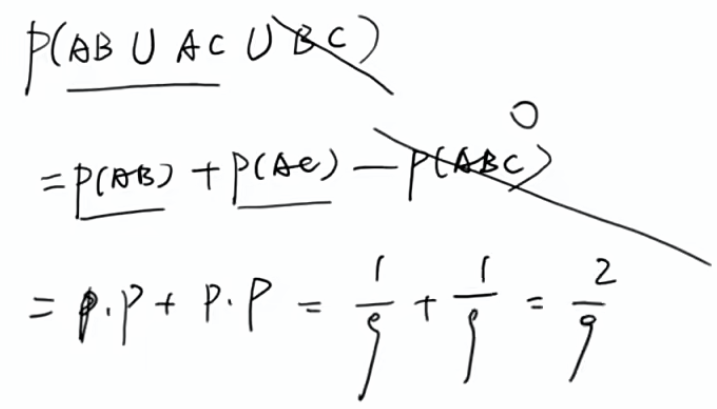 P(AB ∪ AC ∪ BC)
0
= P(AB) + P(AC) — P(ABC)
= P·P + P·P = 1/9 + 1/9 = 2/9